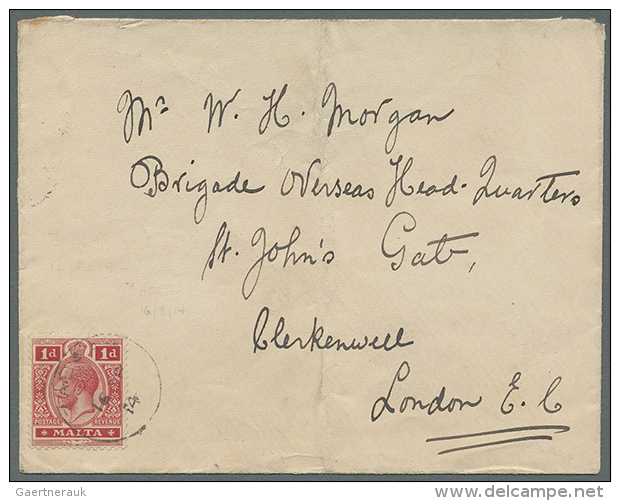 Mr W. H. Morgan
Brigade Overseas Head-Quarters
St. John's Gate,
Clerkenwell
London E. C
1d 1d
POSTAGE REVENUE
MALTA
14
Gaertnerauk
www.delcampe.net